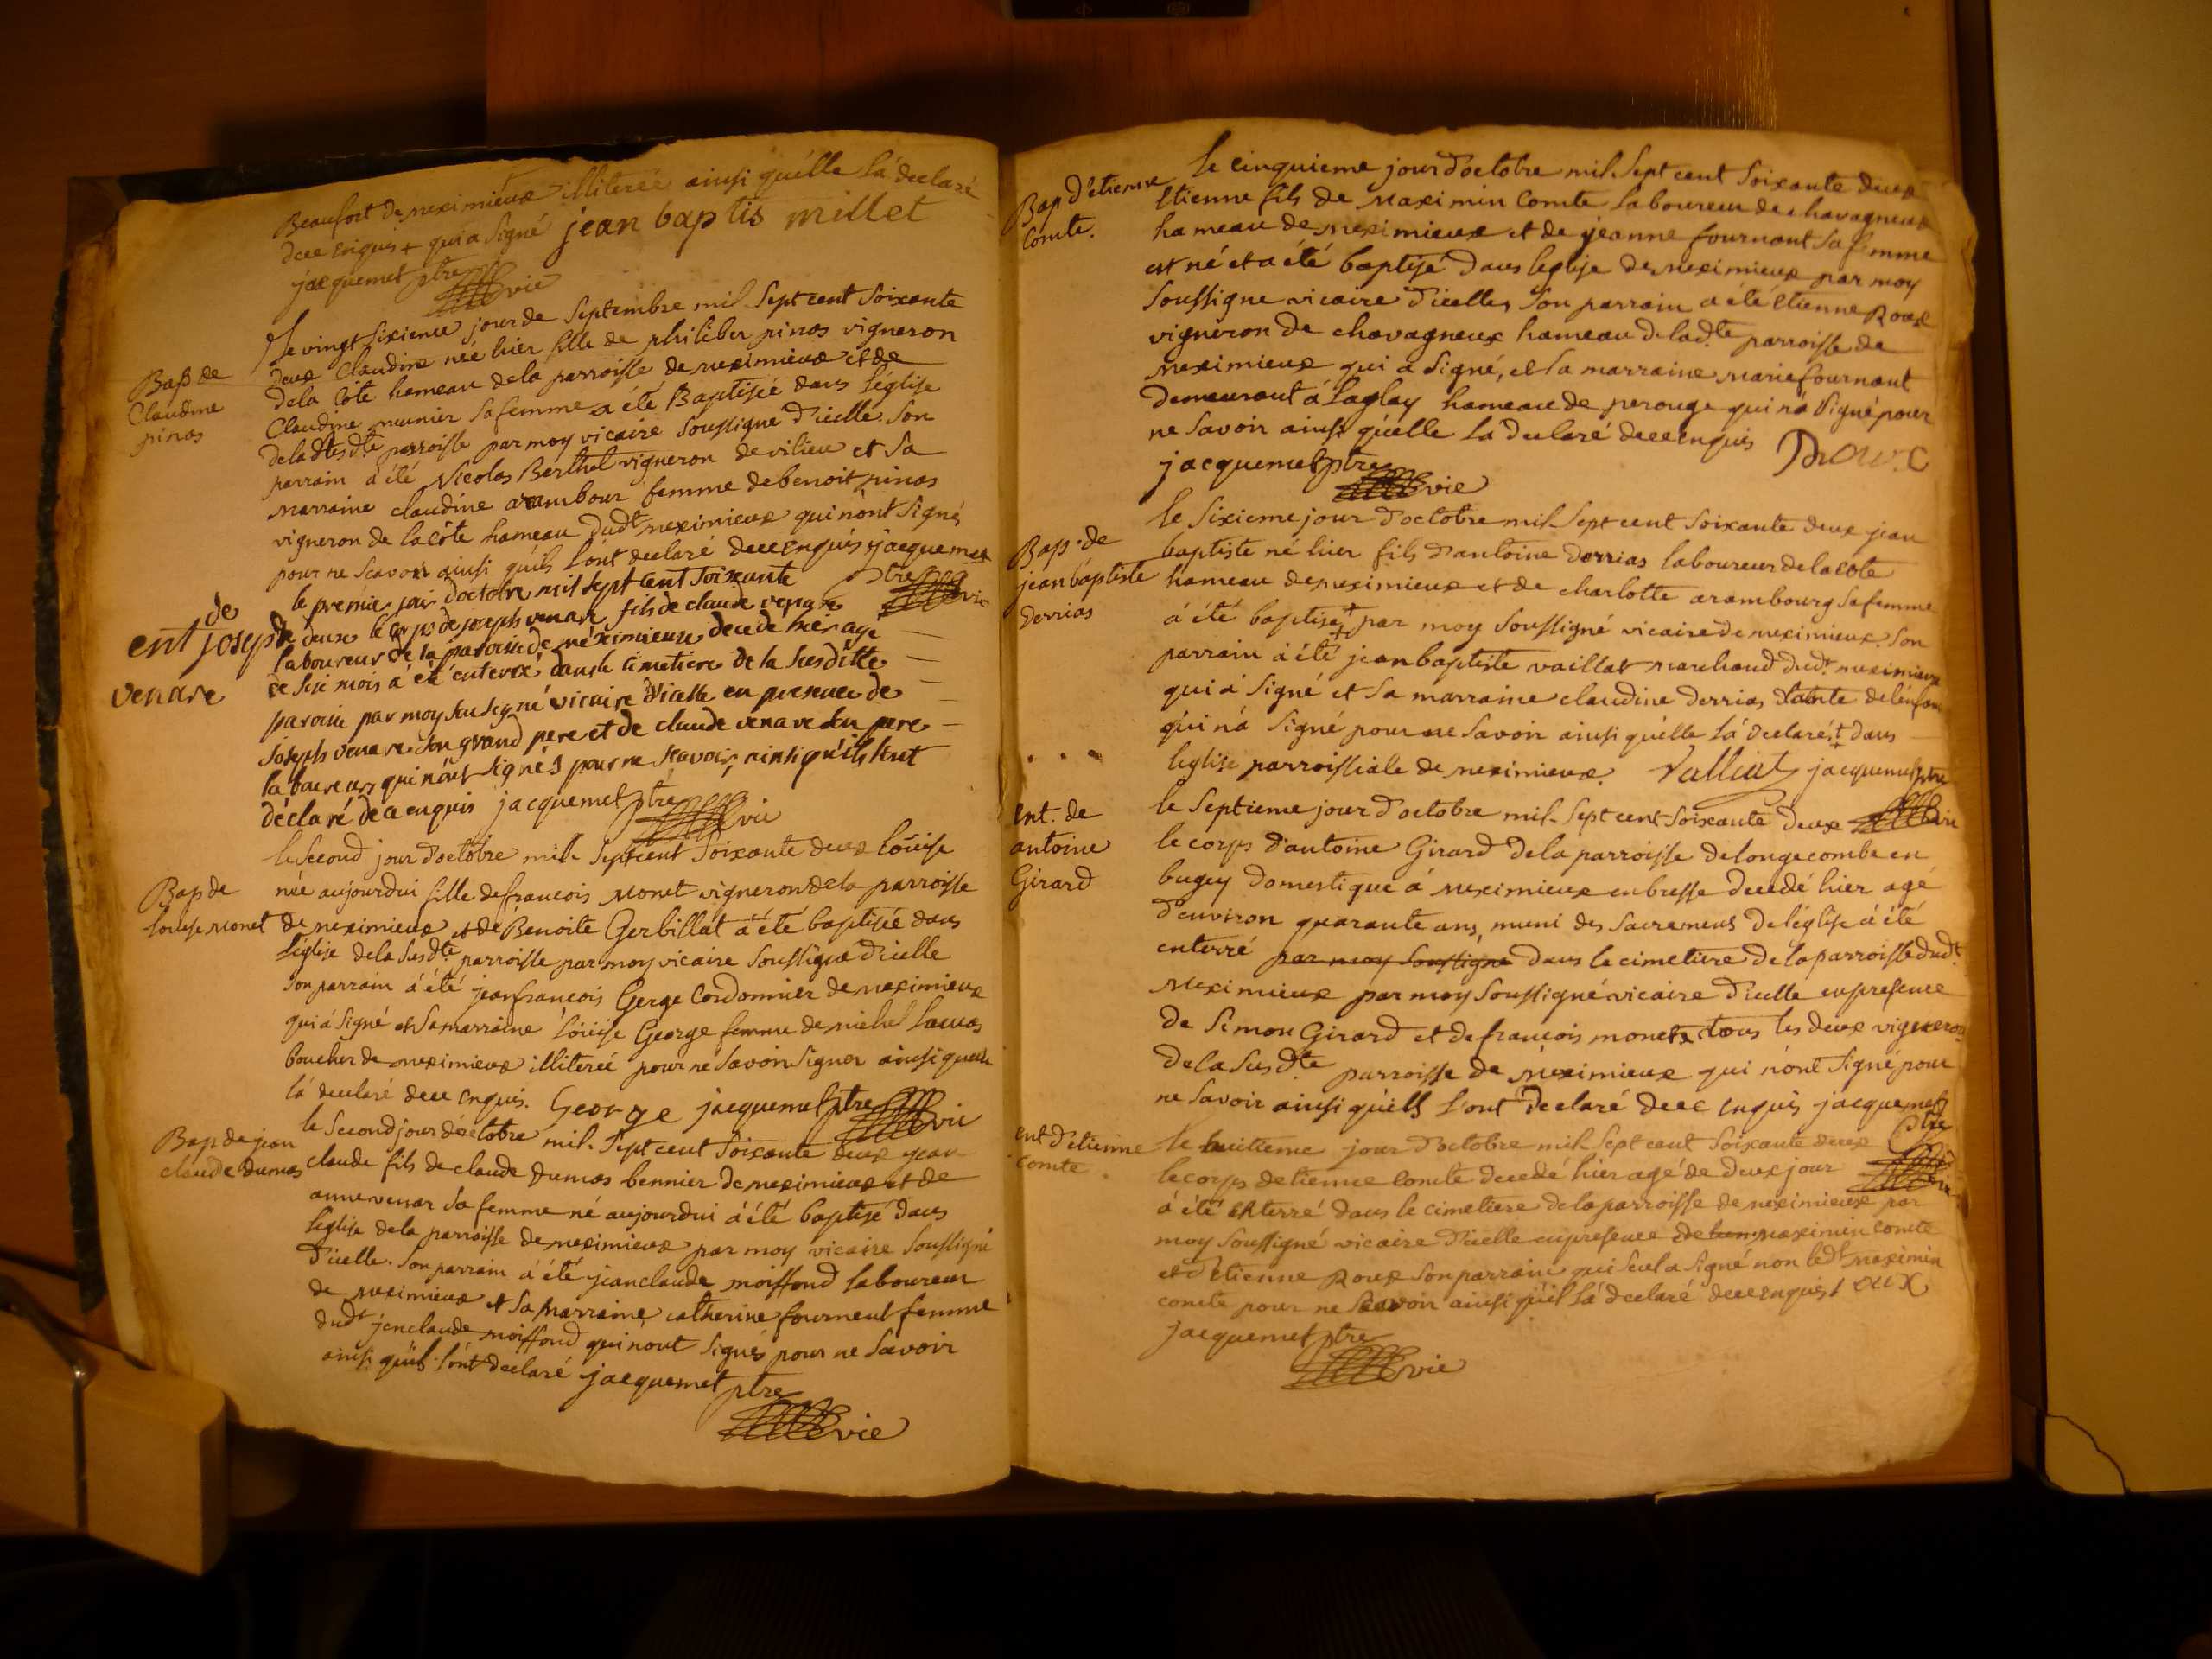 Beaufort de meximieux illiterée ainsi quélle lá declaré
dece enquis + qui a signé jean baptis millet
jacquemet ptre
vic
Bap de
Claudine
pinos
le vingt sixieme jour de septembre mil sept cent soixante
deux Claudine neé hier fille de philiber pinos vigneron
dela côte hameau dela parroisse de meximieux et de
Claudine munier sa femme a été Baptisée dans léglise
de ladte parroisse par moy vicaire soussigné d'icelle. son
parrain a été Nicolas Berthet vigneron de vilieu et sa
marraine claudine arambour femme de benoit pinos
vigneron de la côte hameau dudt meximieux qui nònt signé
pour ne scavoir ainsi quils lònt declaré dece enquis jacquemet
ptre vic
ent de
joseph
venare
le premie jour doctobre mil sept cent soixante
deux le corps de joseph venare fils de claude venare
laboureur de la paroisse de meximieux decedé hier agé
de sese mois a été enterré dans le cimetiere de la susditte
paroisse par moy sousigné vicaire dicelle en presence de
joseph venare son grand pere et de claude venare son pere
laboureurs qui nónt signés pour ne scavoir, ainsi qu'ils l'ont
déclaré dece enquis jacquemet ptre
vic
Bap de
louise monet
le second jour doctobre mil sept cent soixante deux loüise
née aujourdui fille de francois monet vigneron dela parroisse
de meximieux et de Benoite Gerbillat á été baptisée dans
léglise dela susdte parroisse par moy vicaire soussigné d'icelle
son parrain á été jean francois Gerge Cordonnier de meximieux
qui á signé et sa marraine loüise George femme de michel
boucher de meximieux illiterée pour ne savoir signer ainsi quelle
lá declaré dece enquis. George jacquemet ptre
vic
Bap de jean
claude dumas
le second jour doctobre mil sept cent soixante deux jean
claude fils de claude dumas bennier de meximieux et de
anne venar sa femme né aujourdui á été baptisé dans
léglise dela parroisse de meximieux par moy vicaire soussigné
d'icelle. son parrain á été jean claude moiffond laboureur
de meximieux et sa marraine catherine fournent femme
dudt jen claude moiffond qui nont signés pour ne savoir
ainsi quïls lónt declaré jacquemet ptre
vic
Bap d'étienne
Comte.
le cinquieme jour d'octobre mil sept cent soixante deux
Etienne fils de Maximin Comte laboureur de chavagneux
hameau de meximieux et de jeanne fournant sa femme
est né et a été baptisé dans leglise de meximieux par moy
soussigne vicaire d'icelle, son parrain a été Etienne Roux
vigneron de chavagneux hameau de ladte parroisse de
meximieux qui a signé, et sa marraine marie fournant
demeurant á laglay hameau de perouge qui ná signé pour
ne savoir ainsi quélle la declaré dece enquis Roux
jacquemet ptre
vic
Bap. de
jean baptiste
derrias
le sixieme jour d'octobre mil sept cent soixante deux jean
baptiste né hier fils d'antoine derrias laboureur de la cote
hameau de meximieux et de charlotte arambourg sa femme
á été baptisé + par moy soussigné vicaire de meximieux. son
parrain á été jean baptiste vaillat marchand dudt meximieux
qui á signé et sa marraine claudine derrias tante de lénfant
qui ná signé pour ne savoir ainsi quélle lá declaré + dans
leglise parroissiale de meximieux. Valliat jacquemet ptre
vic
ent. de
antoine
Girard
le septieme jour d'octobre mil sept cent soixante deux
le corps d'antoine Girard dela parroisse de longecombe en
bugey domestique á meximieux en bresse decedé hier agé
d'environ quarante ans, muni des sacremens de léglise á été
enterré par moy soussigné dans le cimetiere de la parroisse dudt.
Meximieux par moy soussigné vicaire d'icelle en presence
de simon Girard et de francois monet tous les deux vignerons
de la susdte parroisse de meximieux qui nónt signé pour
ne savoir ainsi quèlls lont declaré dece enquis jacquemet
ptre
vic
ent d'etienne
comte
le huitieme jour d'octobre mil sept cent soixante deux
le corps detienne Comte decedé hier agé de deux jour
á été enterré dans le cimetiere de la parroisse de meximieux par
moy soussigné vicaire d'icelle en presence de maximin comte
et d'etienne Roux son parrain qui seul a signé non ledt maximin
comte pour ne scavoir ainsi quil lá declaré dece enquis roux
jacquemet ptre
vic